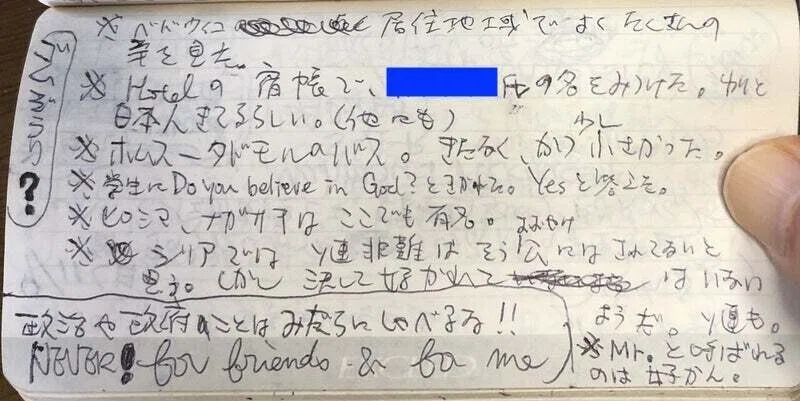 ※ベドウィン 居住地域でよくたくさんの
羊を見た。
※Hotelの宿帳で、 氏の名をみつけた。わりと
日本人きてるらしい。(他にも)
少し
※ホムスータドモルのバス。きたなく、かつ小さかった。
※学生にDo you believe in God?ときかれた。Yesと答えた。
※ヒロシマ、ナガサキはここでも有名。
おおやけ
※シリアではソ連非難はそう公にはされてないと
思う。しかし決して好かれて はいない
ようだ。ソ連も。
※Mr.と呼ばれる
のは好かん。
政治や政府のことはみだらにしゃべるな!!
NEVER! for friends & for me